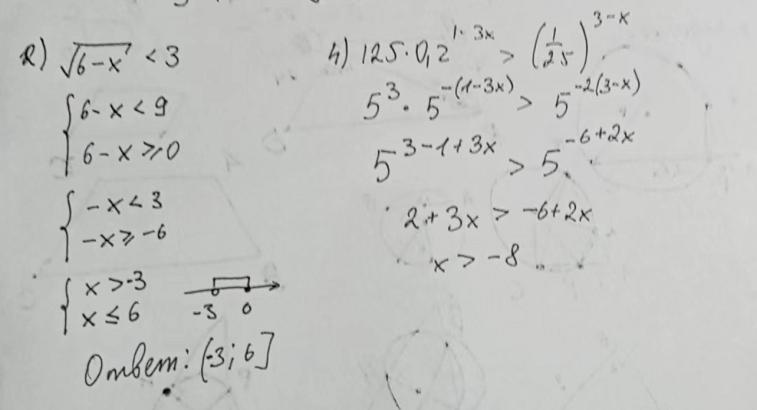 2) √(6-x) < 3
{ 6-x < 9
6-x ⩾ 0
{ -x < 3
-x ⩾ -6
{ x > -3
x ≤ 6
-3 0
Ответ: (-3; 6]
4) 125·0,2^(1-3x) > (1/25)^(3-x)
5^3 · 5^(-(1-3x)) > 5^(-2(3-x))
5^(3-1+3x) > 5^(-6+2x)
2+3x > -6+2x
x > -8